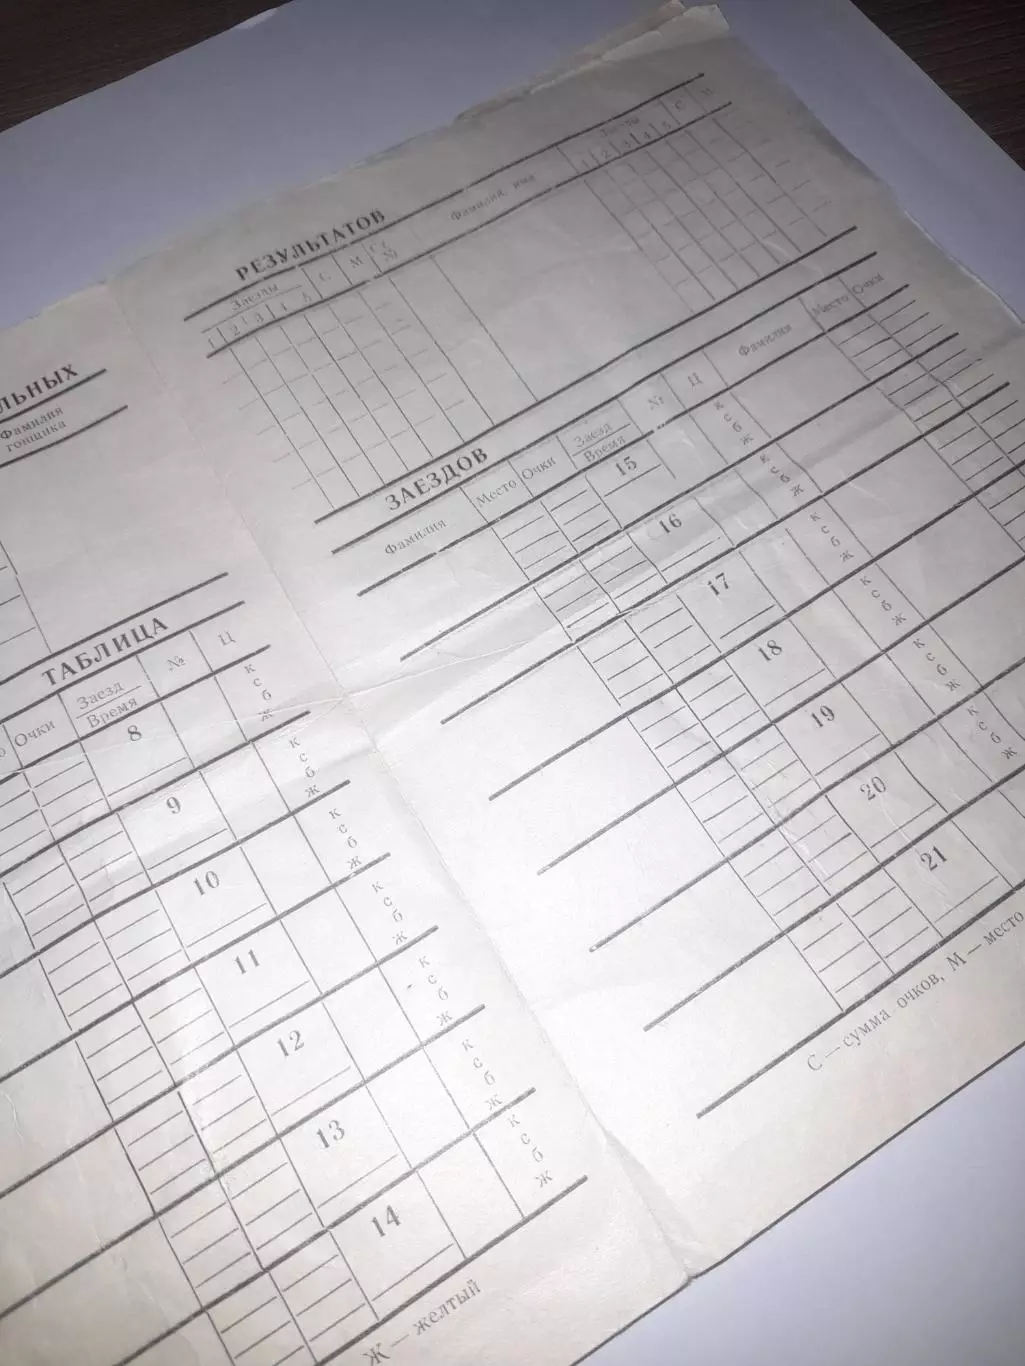 РЕЗУЛЬТАТОВ
Заезды С М Ст. № Фамилия, имя Заезды С М
1 2 3 4 5 1 2 3 4 5
ЛЬНЫХ
Фамилия
гонщика
ТАБЛИЦА ЗАЕЗДОВ
Очки Заезд № Ц Фамилия Место Очки Заезд № Ц Фамилия Место Очки
Время Время
8 к с б ж 15 к с б ж
9 к с б ж 16 к с б ж
10 к с б ж 17 к с б ж
11 к с б ж 18 к с б ж
12 к с б ж 19 к с б ж
13 к с б ж 20 к с б ж
14 к с б ж 21
Ж — желтый С — сумма очков, М — место